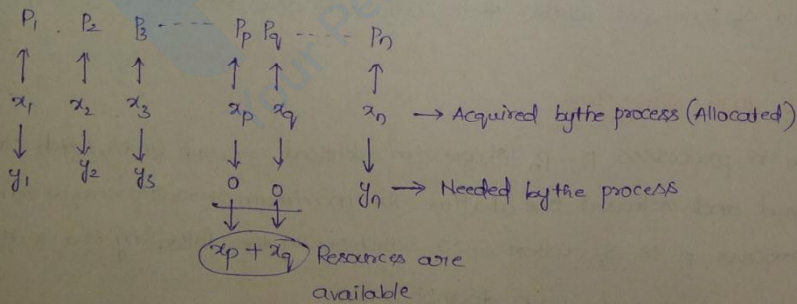 P1 P2 P3 ---- Pp Pq ---- Pn
x1 x2 x3 xp xq xn → Acquired bythe process (Allocated)
y1 y2 y3 0 0 yn → Needed by the process
xp + xq Resources are
available